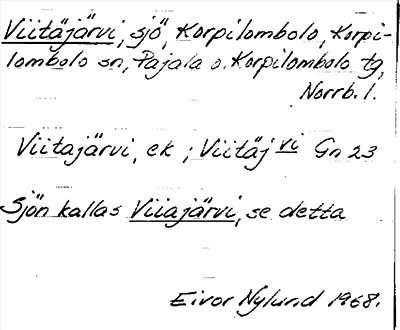 Viitäjärvi, sjö, Korpilombolo, Korpi-
lombolo sn, Pajala o. Korpilombolo tg,
Norrb. l.
Viitajärvi, ek ; Viitäj vi Gn 23
Sjön kallas Viiajärvi, se detta
Eivor Nylund 1968.